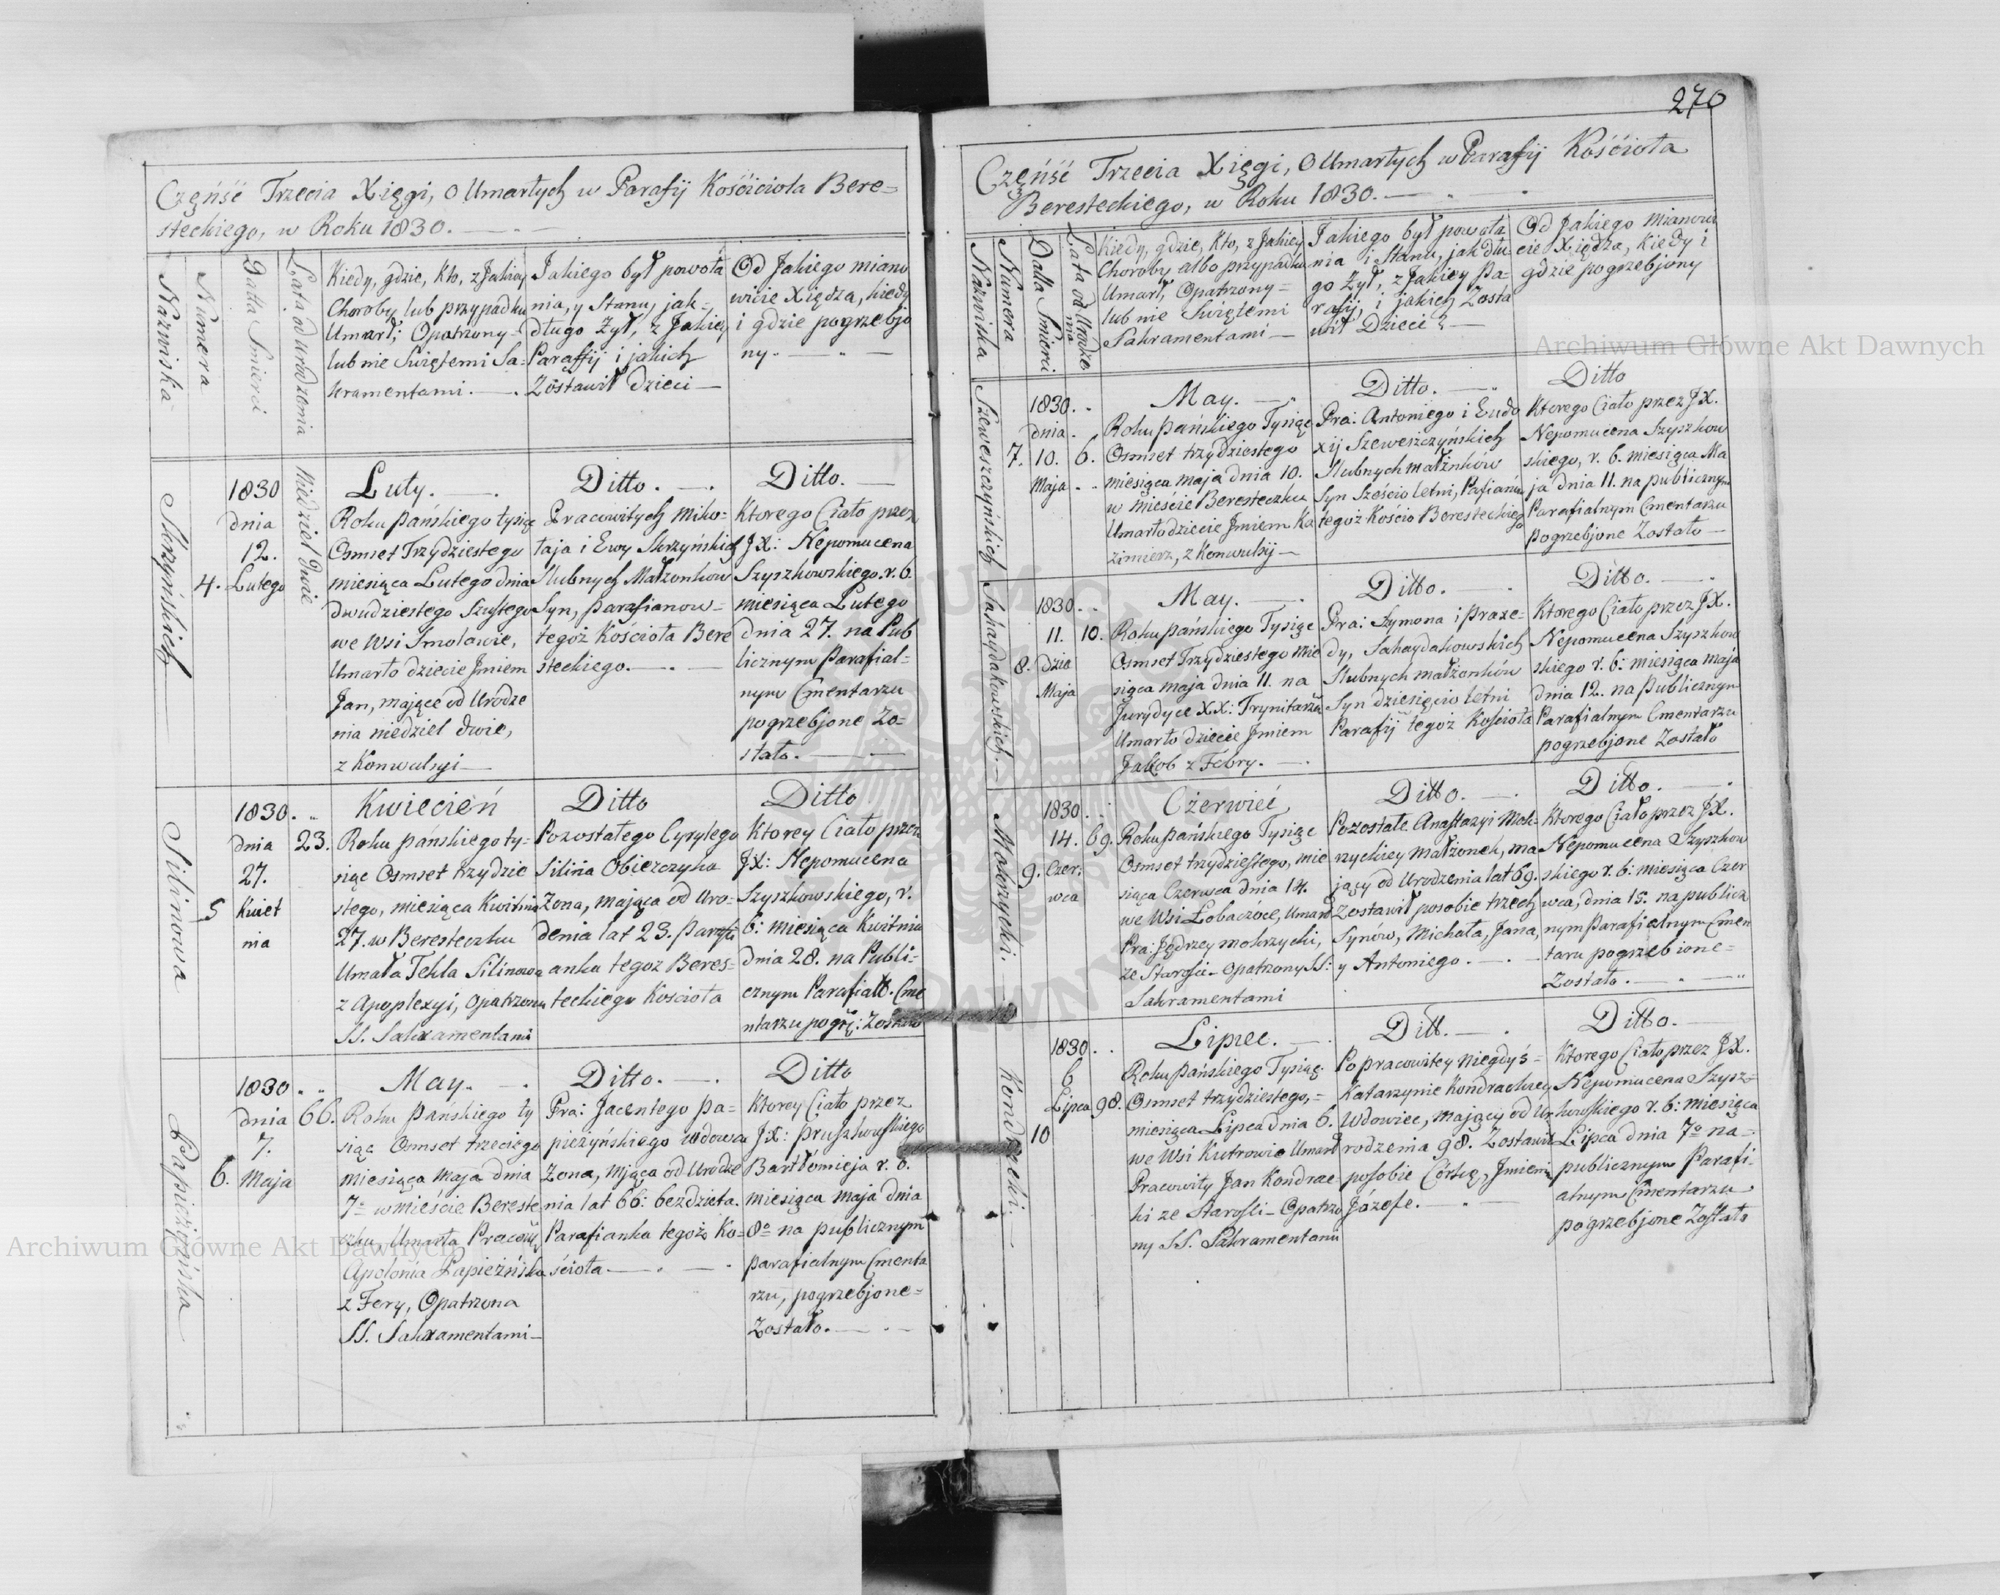 270
Częńść Trzecia Xięgi, o Umarłych w Parafij Kośćiciola Bere=
steckiego, w Roku 1830.
Nazwiska
Numera
Datta Smierci
Lata od urodzenia
Kiedy, gdzie, Kto, z Jakiey
Choroby, lub przypadku
Umarł; Opatrzony=
lub nie Swiętemi Sa=
kramentami.
Jakiego był powoła
nia, y Stanu, jak=
długo Zył, z Jakiey
Paraffij i jakich
Zostawił dzieci
Od Jakiego miano
wicie Xiędza, kiedy
i gdzie pogrzebjo
ny.
Skrzyńskich
4.
1830
dnia
12.
Lutego
Niedziel dwie
Luty.
Roku pańskiego tysiąc
Osmset Trzydziestego
miesiąca Lutego dnia
dwudziestego Szustego
we Wsi Smolawie,
Umarło dziecie Jmiem
Jan, mające od Urodze
nia niedziel dwie,
z Konwulsyi
Ditto.
Pracowitych Miko=
łaja i Ewy Skrzyńskich
Slubnych Małzonkow
Syn, parafianow=
tegoż Kościoła Bere
steckiego.
Ditto.
Ktorego Ciało przez
JX: Nepomucena
Szyszkowskiego. v. b.
miesiąca Lutego
dnia 27. na Pub
licznym Parafial=
nym Cmentarzu
pogrzebjone Zo=
stało.
Silinowa
5
1830.
dnia
27.
Kwiet
nia
23.
Kwiecień
Roku pańskiego ty=
siąc Osmset trzydzie
stego, miesiąca Kwitnia
27. w Beresteczku
Umała Tekla Silinowa
z Apoplexyi, opatrzona
SS. Sakramentami
Ditto
Pozostałego Cyrylego
Silina Obierczyka
Zona, mająca od Uro=
denia lat 23. Parafi
anka tegoz Beres=
teckiego Kosciola
Ditto
Ktorey Ciało przez
JX: Nepomucena
Szyszkowskiego, v.
b: miesiąca Kwitnia
dnia 28. na Publi=
cznym Parafiall. Cme
ntarzu pogrzę: Zostało
Papieżińska
6.
1830
dnia
7.
Maja
66.
May.
Roku Pańskiego ty
siąc Osmset trzeciego
miesiąca maja dnia
7º w mieście Bereste
czku, Umarła Pracowi,
Apolonia Papieżińska
z Fery, Opatrzona
SS. Sakramentami
Ditto.
Pra: Jacentego Pa=
pieżyńskiego wdowa
Zona, mjąca od Urodze
nia lat 66: bezdzieta.
Parafianka tegoż Ko=
ściola
Ditto
Ktorey Ciało przez
JX: Pruszkowskiego
Bartłomieja v. b.
miesiąca maja dnia
8º na publicznym
parafialnym Cmenta
rzu, pogrzebjone=
Zostało.
Częńść Trzecia Xięgi, O Umarłych w Parafij Kośćioła
Beresteckiego, w Roku 1830.
Nazwiska
Numera
Datta Smierci
Lata od Urodze
nia
Kiedy, gdzie, Kto, z Jakiey
Choroby albo przypadku
Umarł, Opatrzony=
lub nie Swiętemi
Sakramentami
Jakiego był powoła
nia i Stanu, jak dłu
go Zył, z Jakiey Pa=
rafij, i jakich Zosta
wił Dzieci?
Od Jakiego mianowi
cie Xiędza, Kiedy i
gdzie pogrzebjony
Szeweszczyńskich
7.
1830.
dnia
10.
Maja
6.
May.
Roku Pańskiego Tysiąc
Osmset trzydziestego
miesiąca maja dnia 10.
w mieście Beresteczku
Umarło dziecie Jmiem Ka
zimierz, z Konwulsij
Ditto.
Pra: Antoniego i Eudo
xij Szeweszczyńskich
Slubnych małżnków
Syn Sześcio letni, Pafianin
tegoż Kościo Beresteckiego
Ditto
Ktorego Ciało przez JX.
Nepomucena Szyszkow
skiego, v. b. miesiąca Ma
ja dnia 11. na publicznym
Parafialnym Cmentarzu
pogrzebjone Zostało
Sahaydakowskich
8.
1830.
11.
dzia
Maja
10.
May.
Roku pańskiego Tysiąc
Osmset Trzydziestego mie
siąca maja dnia 11. na
Jurydyce XX: Trynitarzu
Umarło dziecie Jmiem
Jakob z Febry.
Ditto.
Pra: Szymona i Praxe=
dy, Sahaydakowskich
Slubnych małżonków
Syn dziesięcio letni
Parafij tegoż Kościoła
Ditto.
Ktorego Ciało przez JX.
Nepomucena Szyszkow
skiego v. b: miesiąca maja
dnia 12. na publicznym
Parafialnym Cmentarzu
pogrzebjone Zostało
Mokrzycki.
9.
1830
14.
Czer.
wca
69.
Czerwieć
Roku pańskiego Tysiąc
Osmset trzydziestego, mie
siąca Czerwca dnia 14.
we Wsi Łobaczóce, Umarł
Pra: Jędrzey mokrzycki,
ze Starości= Opatrzony SS:
Sakramentami
Ditto.
Pozostałe. Anastazyi Mok=
rzyckiey Małżonek, ma
jący od Urodzenia lat 69.
Zostawił posobie trzech
Synów, Michała, Jana,
y Antoniego.
Ditto.
Ktorego Ciało przez JX.
Nepomucena Szyszkow
skiego v. b: miesiąca Czer
wca, dnia 15. na publicz
nym Parafialnym Cmen
taru pogrzebione=
Zostało.
Kondracki.
10
1830
6
Lipca
98.
Lipiec.
Roku Pańskiego Tysiąc
Osmset trzydziestego,=
miesiąca Lipca dnia 6.
we Wsi Kutrowie Umarł
Pracowity Jan Kondrac
ki ze Starosci= Opatrzo
ny SS. Sakramentami
Ditt.
Po pracowitey niegdyś=
Katarzynie Kondrackiey
Wdowiec, mający od U
rodzenia 98. Zostawił
posobie Córkę, Jmieniu
Józefe.
Ditto.
Ktorego Ciało przez JX.
Nepomucena Szysz=
kowskiego v. b: miesiąca
Lipca dnia 7º na=
publicznym Parafi=
alnym Cmentarzu
pogrzebjone Zostało
Archiwum Główne Akt Dawnych
Archiwum Główne Akt Dawnych